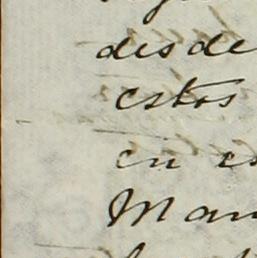 desde
estos
en es
Man